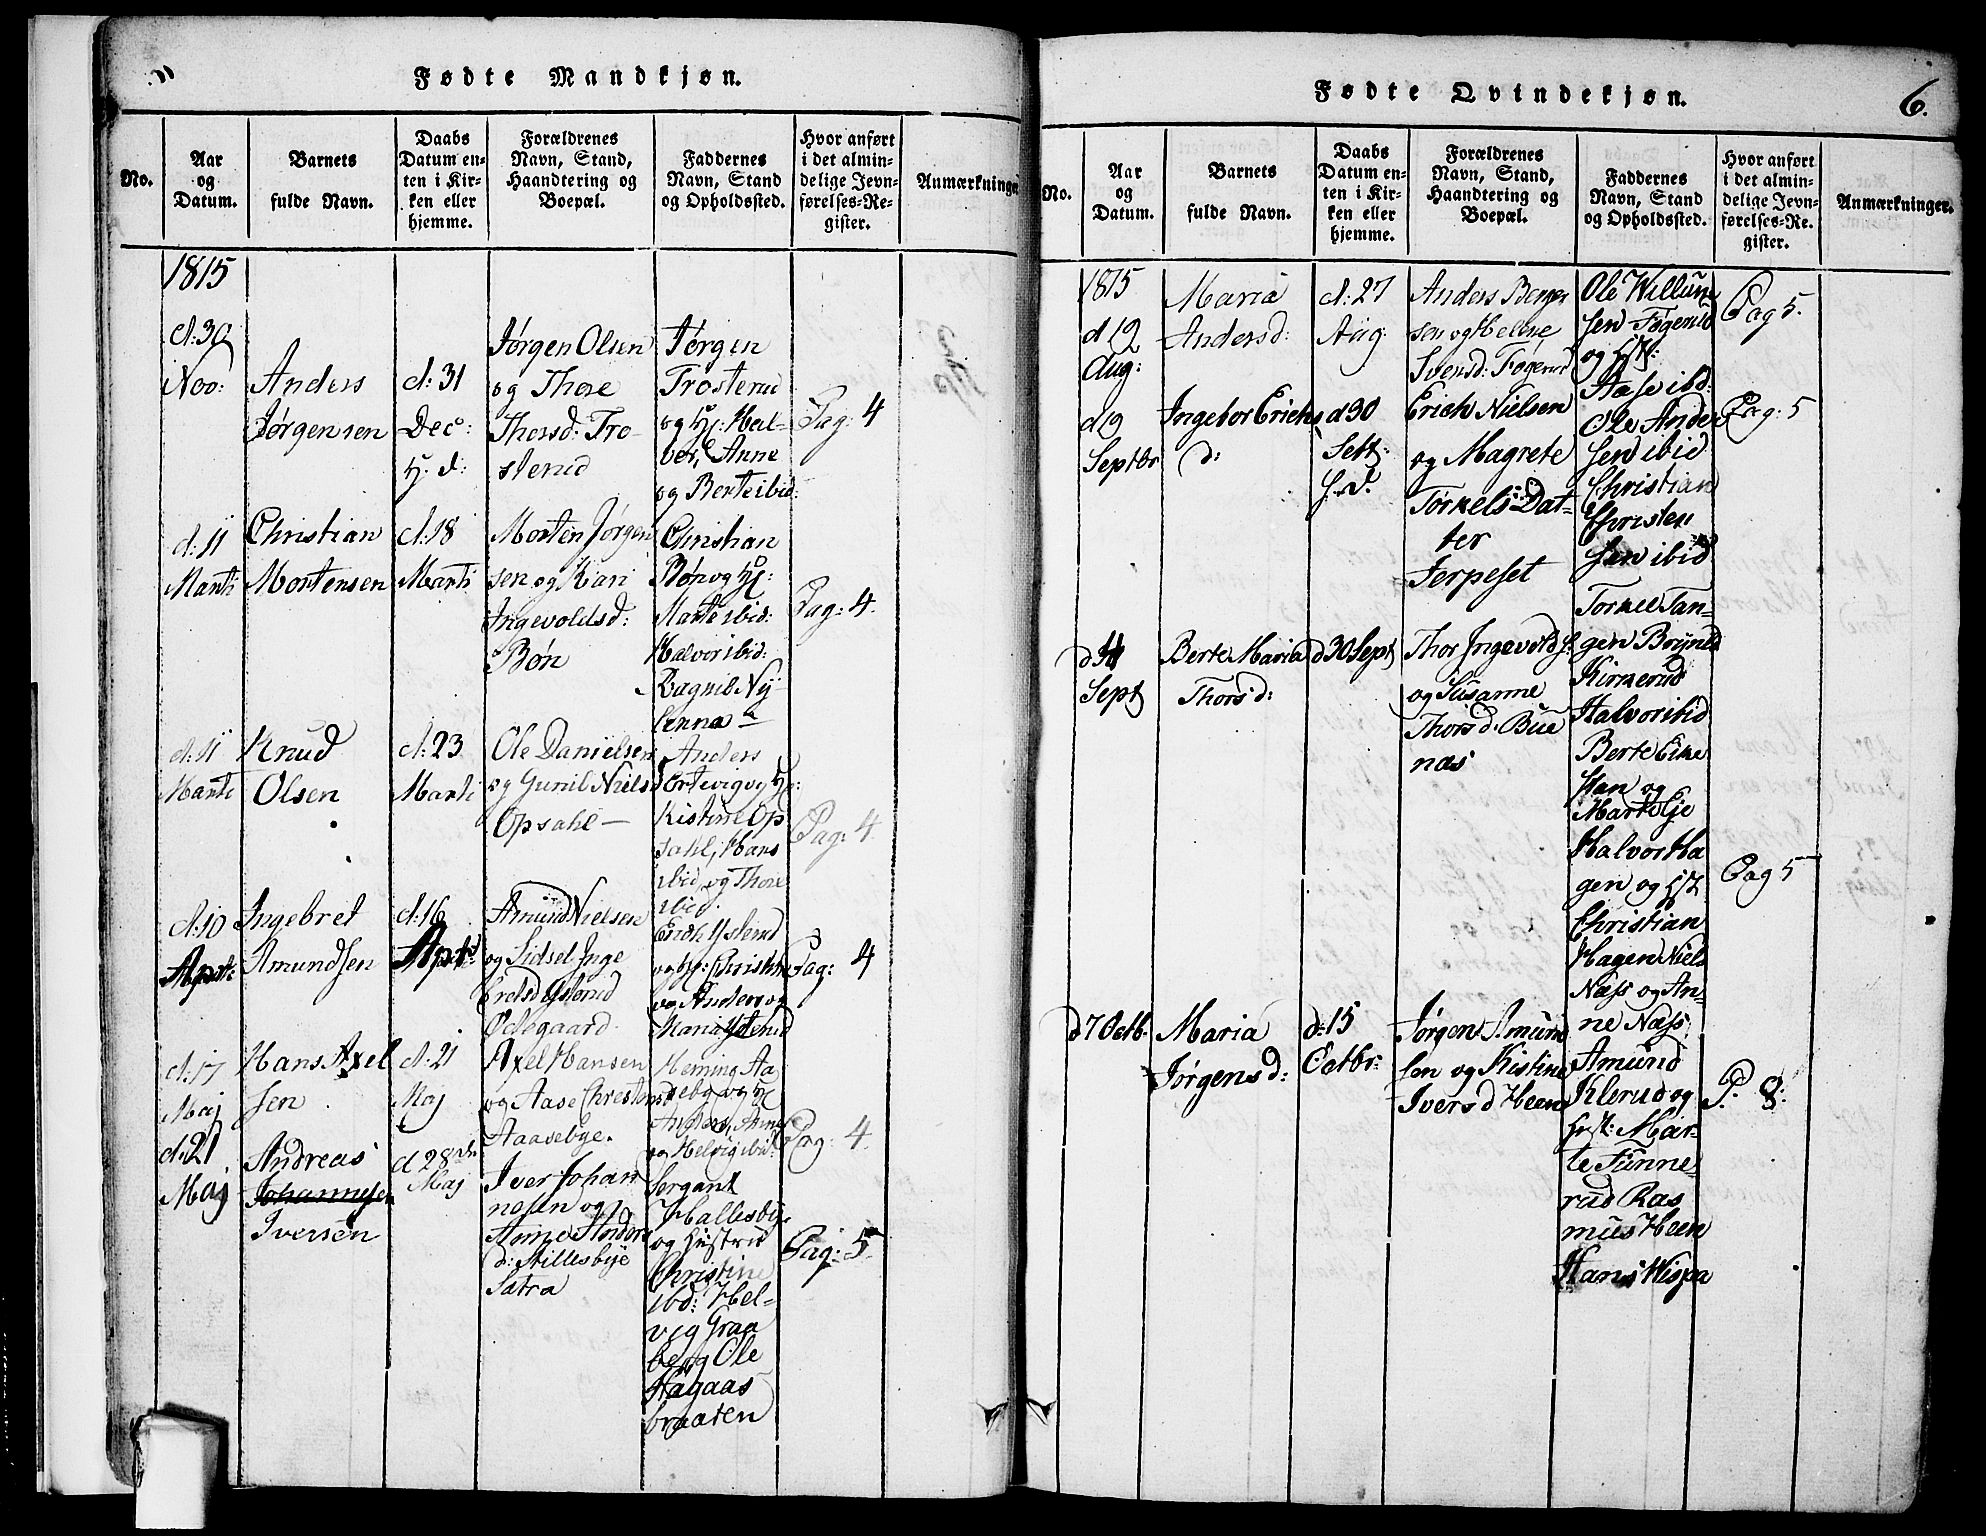 Fødte Mandkjøn.
No.
Aar
og
Datum.
Barnets
fulde Navn.
Daabs
Datum en-
ten i Kir-
ken eller
hjemme.
Forældrenes
Navn, Stand,
Haandtering og
Boepæl.
Faddernes
Navn, Stand
og Opholdssted.
Hvor anført
i det almin-
delige Jevn-
førelses-Re-
gister.
Anmærkninger
1815
d: 30
Nov:
Anders
Jørgensen
d: 31
Dec:
H. d:
Jørgen Olsen
og Thore
Thorsd: Tro-
sterud
Jørgen
Trosterud
og H: Hal-
vor, Anne
og Berte ibid:
Pag: 4
d: 11
Marti
Christian
Mortensen
d: 18
Marti
Morten Jørgen
sen og Kari
Ingevoldsd:
Bøn
Christian
Bøn og H:
Marte ibid:
Halvor ibid:
Ragnil Ny
lænna
Pag: 4.
d: 11
Marti
Knud
Olsen
d: 23
Marti
Ole Danielsen
og Gunil Niels
Opsahl —
Anders
Hortevig og H:
Kistine Op
sahl, Hans
ibid, og Thore
ibid.
Pag: 4.
d: 10
April:
Ingebret
Amundsen
d: 16
April
Amund Nielsen
og Sidsel Inge
bretsd Ysterud
Ødegaard.
Erich Ysterud
og H: Christine
og Anders og
Maria Ysterud
Pag: 4
d: 17
Maj
Hans Axel
sen
d: 21
Maj
Axel Hansen
og Aase Chrestens
Aasebye.
Heming Aa
sebye og H
Anders, Anne
og Helvig ibid:
Pag: 4.
d: 21
Maj
Andreas
Johannesen
Iversen
d 28de
Maj
Iver Johan
nesen og
Anne Andors
d: Stillesbye
Satra
Sergant
Hallesbye
og Hustrue
Christine
ibd: Hel-
vig Graa
be og Ole
Hagaas
braaten
Pag: 5.
Fødte Qvindekjøn.
6.
No.
Aar
og
Datum.
Barnets
fulde Navn.
Daabs
Datum en-
ten i Kir-
ken eller
hjemme.
Forældrenes
Navn, Stand,
Haandtering og
Boepæl.
Faddernes
Navn, Stand
og Opholdssted.
Hvor anført
i det almin-
delige Jevn-
førelses-Re-
gister.
Anmærkninger.
1815
d 12
Aug:
Maria
Andersd:
d: 27
Aug:
Anders Berger
sen og Helene
Svensd: Føgerud
Ole Willum
sen Føgerud
og H:
Aase ibd:
Pag 5.
d 9
Septbr
Ingebor Erichs
d:
d 30
Sebt:
h. d.
Erich Nielsen
og Magrete
Torkels Dat-
ter
Jerpeset
Ole Ander
sen ibid
Christian
Christen
sen ibid
Pag: 5
d 4
Sept
Berte Maria
Thorsd:
d 30 Sept
Thor Ingevolds.
og Susanne
Thorsd. Bue
næs
Torkel Tan-
gen Brynild
Kirkerud
Halvor ibid
Berte Eike
Stan og
Marte Eje
Halvor Ha
gen og H
Christian
Hagen Niels
Næss og An-
ne Næss
Pag 5
d 7 Octb.
Maria
Jørgensd:
d: 15
Octbr:
Jørgen Amund
sen og Kistine
Iversd Heen
Amund
Klerud og
hust: Mar-
te Funne-
rud Ras
mus Heen
Hans Wispa
P. 8.